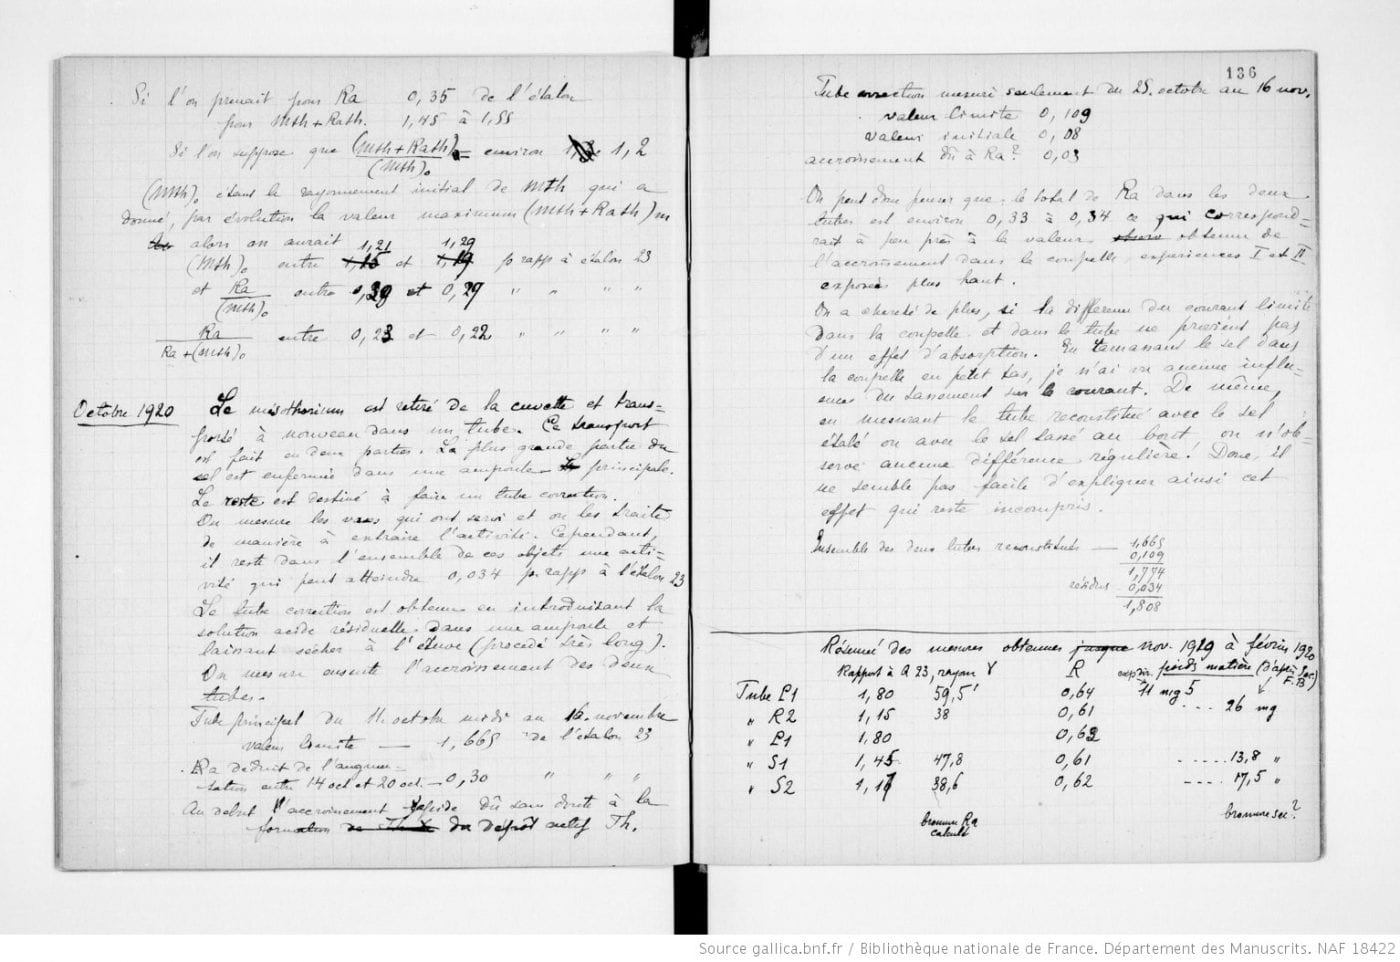 Si l'on prenait pour Ra 0,35 de l'étalon
pour Mth+Rath. 1,45 à 1,55
Si l'on suppose que (Mth+Rath)₀ / (Mth)₀ = environ 1,2
(Mth)₀ étant le rayonnement initial de Mth qui a
donné, par évolution la valeur maximum (Mth+Rath)m
alors on aurait 1,21 1,29
(Mth)₀ entre 1,15 et 1,19 p rapp à étalon 23
et Ra / (Mth)₀ entre 0,29 et 0,29 " " " "
Ra / Ra+(Mth)₀ entre 0,23 et 0,22 " " " "
Octobre 1920 Le mésothorium est retiré de la cuvette et trans-
porté à nouveau dans un tube. Ce transport
est fait en deux parties. La plus grande partie du
sel est enfermée dans une ampoule principale.
Le reste est destiné à faire un tube correction.
On mesure les vases qui ont servi et on les traite
de manière à extraire l'activité. Cependant,
il reste dans l'ensemble de ces objets une acti-
vité qui peut atteindre 0,034 p. rapp à l'étalon 23
Le tube correction est obtenu en introduisant la
solution acide résiduelle dans une ampoule et
laissant sécher à l'étuve (procédé très long).
On mesure ensuite l'accroissement des deux
tubes.
Tube principal du 11 octobre midi au 16 novembre
valeur limite — 1,665 de l'étalon 23
Ra déduit de l'augmen-
tation entre 14 oct et 20 oct — 0,30 " " "
Au début l'accroissement rapide dû sans doute à la
formation de Th X du dépôt actif Th.
136
Tube correction mesuré seulement du 25 octobre au 16 nov.
valeur limite 0,109
valeur initiale 0,08
accroissement dû à Ra? 0,03
On peut donc penser que le total de Ra dans les deux
tubes est environ 0,33 à 0,34 ce qui correspond-
rait à peu près à la valeur obtenue de
l'accroissement dans la coupelle, expériences I et II
exposées plus haut.
On a cherché de plus, si la différence du courant limite
dans la coupelle et dans le tube ne provient pas
d'un effet d'absorption. En ramassant le sel dans
la coupelle en petit tas, je n'ai vu aucune influ-
ence du tassement sur le courant. De même,
en mesurant le tube reconstitué avec le sel
étalé ou avec le sel tassé au bout, on n'ob-
serve aucune différence régulière! Donc, il
ne semble pas facile d'expliquer ainsi cet
effet qui reste incompris.
Ensemble des deux tubes reconstitués — 1,665
0,109
1,774
résidus 0,034
1,808
Résumé des mesures obtenues jusque nov. 1919 à février 1920
Rapport à A 23, rayon γ R poids matière (d'après Soc. F. B)
Tube P1 1,80 59,5 0,64 11 mg 5
" R2 1,15 38 0,61 .... 26 mg
" P1 1,80 0,62
" S1 1,45 47,8 0,61 ..... 13,8 "
" S2 1,17 38,6 0,62 ..... 17,5 "
bromure Ra
calculé
bromure sec?
Source gallica.bnf.fr / Bibliothèque nationale de France. Département des Manuscrits. NAF 18422